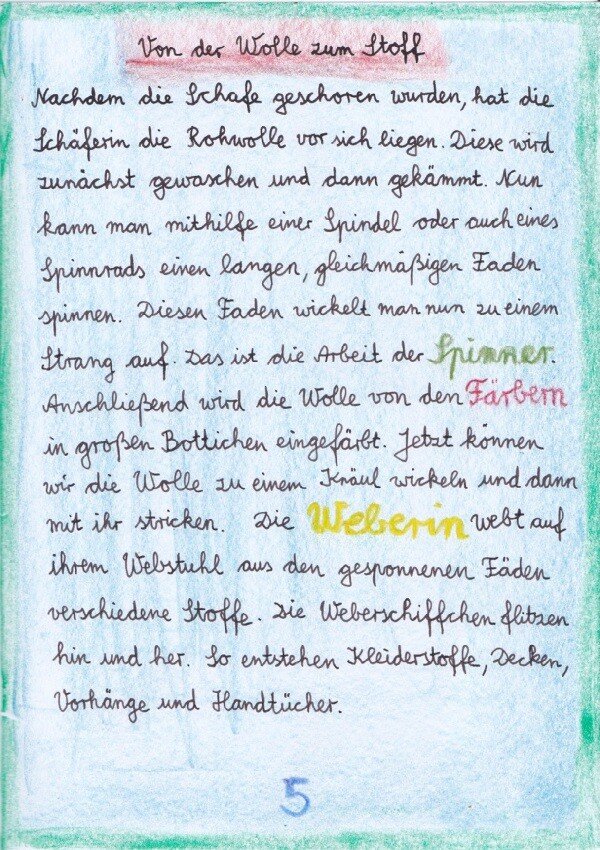 Von der Wolle zum Stoff
Nachdem die Schafe geschoren wurden, hat die
Schäferin die Rohwolle vor sich liegen. Diese wird
zunächst gewaschen und dann gekämmt. Nun
kann man mithilfe einer Spindel oder auch eines
Spinnrads einen langen, gleichmäßigen Faden
spinnen. Diesen Faden wickelt man nun zu einem
Strang auf. Das ist die Arbeit der Spinner.
Anschließend wird die Wolle von den Färbern
in großen Bottichen eingefärbt. Jetzt können
wir die Wolle zu einem Knäul wickeln und dann
mit ihr stricken. Die Weberin webt auf
ihrem Webstuhl aus den gesponnenen Fäden
verschiedene Stoffe. Die Weberschiffchen flitzen
hin und her. So entstehen Kleiderstoffe, Decken,
Vorhänge und Handtücher.
5